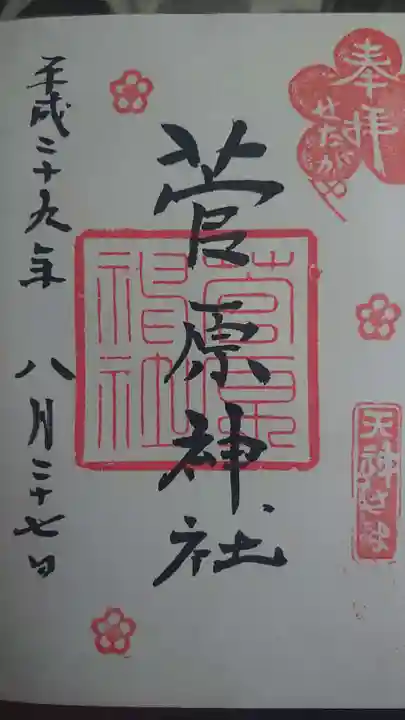 奉拝
せたがや
天神社
菅原神社
菅原神社
平成二十九年 八月二十七日